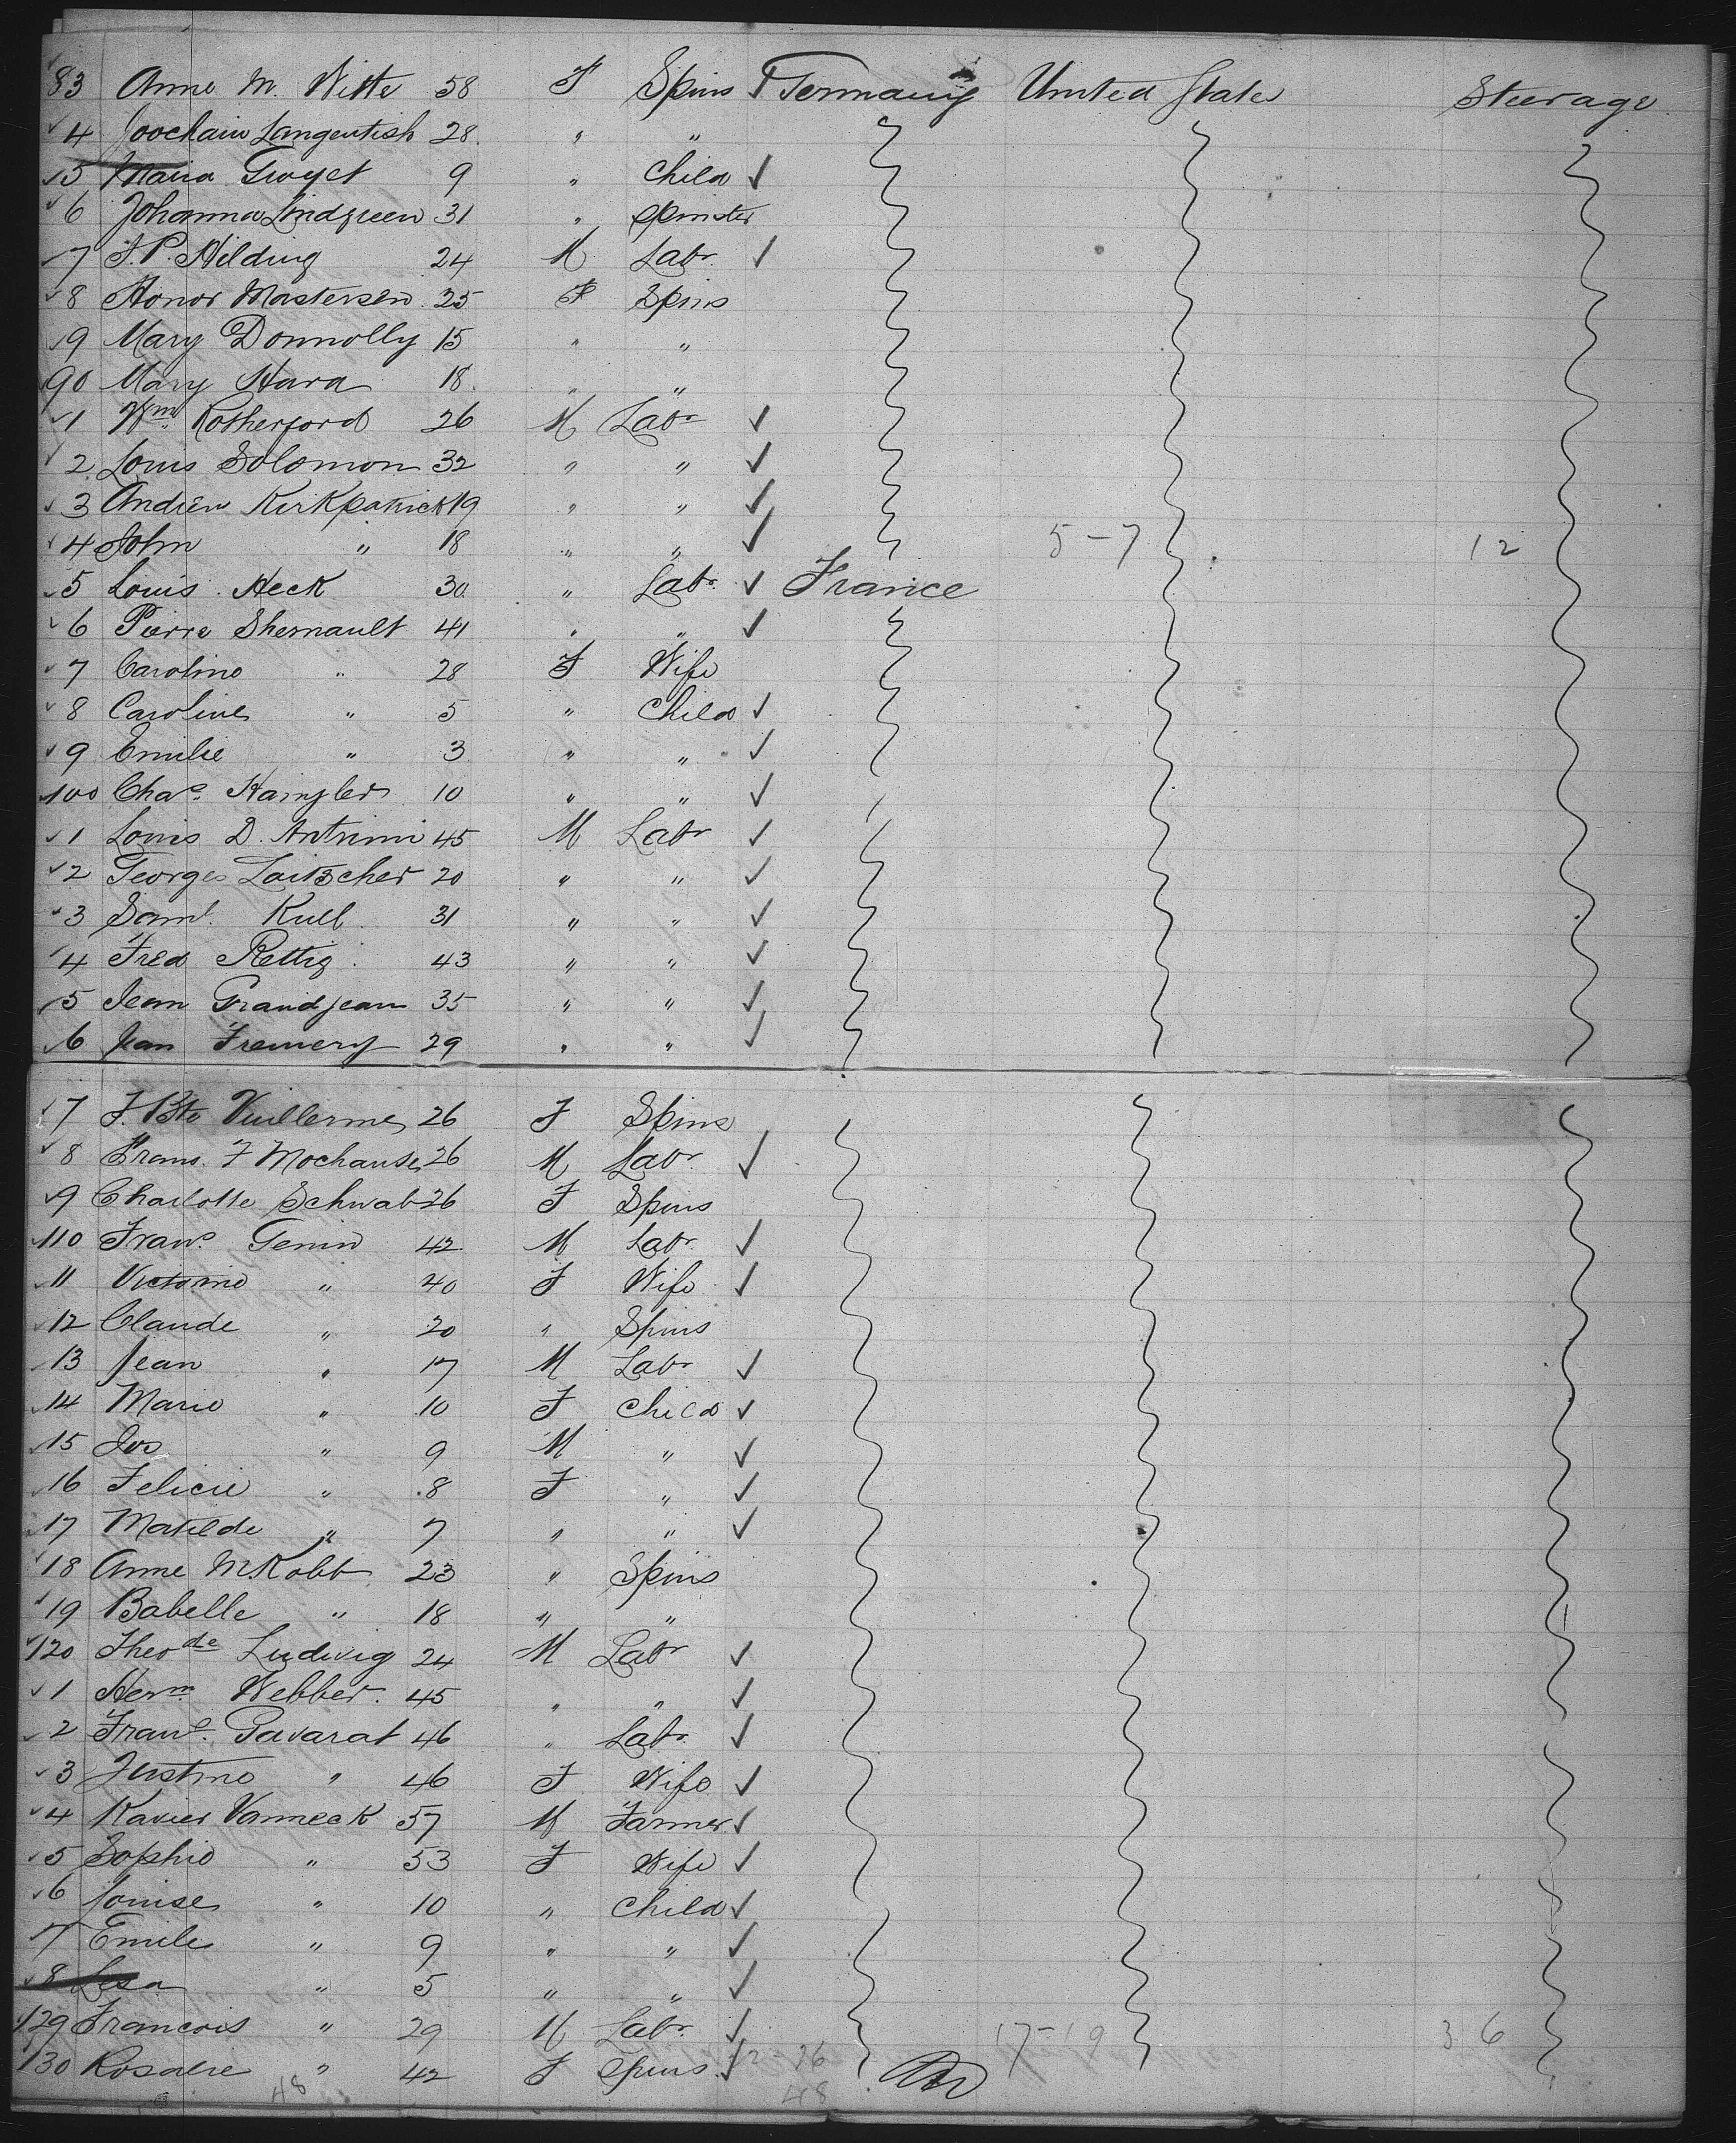 83 Anne M. Witte 58 F Spins Germany United States Steerage
4 Joochain Langentish 28 " "
5 Maria Gruyet 9 " Child
6 Johanna Lindgreen 31 " Spinster
7 J. P. Hilding 24 M Labr
8 Honor Mastersen 25 F Spins
9 Mary Donnolly 15 " "
90 Mary Hara 18 " "
1 Wm. Rotherford 26 M Labr
2 Louis Solomon 32 " "
3 Andrew Kirkpatrick 19 " "
4 John " 18 " " 5-7 12
5 Louis Heck 30 " Labr France
6 Pierre Shernault 41 " "
7 Caroline " 28 F Wife
8 Caroline " 5 " Child
9 Emilie " 3 " "
100 Chas. Kaingler 10 " "
1 Louis D. Antrimi 45 M Labr
2 Georges Laitscher 20 " "
3 Saml. Kull 31 " "
4 Fred Rettig 43 " "
5 Jean Grandjean 35 " "
6 Jean Fremery 29 " "
7 J. Bte Vuillerme 26 F Spins
8 Frans. F Mochause 26 M Labr
9 Charlotte Schwab 26 F Spins
110 Frans. Genin 42 M Labr
11 Victorine " 40 F Wife
12 Claude " 20 " Spins
13 Jean " 17 M Labr
14 Marie " 10 F Child
15 Jos " 9 M "
16 Felicie " 8 F "
17 Matilde " 7 " "
18 Anne M. Kobb 23 " Spins
19 Babelle " 18 " "
120 Theode Ludwig 24 M Labr
1 Herm. Webber 45 " "
2 Frans. Gavarat 46 " Labr
3 Justine " 46 F Wife
4 Xavier Vanneck 57 M Farmer
5 Sophie " 53 F Wife
6 Louise " 10 " Child
7 Emile " 9 " "
8 Lisa " 5 " "
129 Francois " 29 M Labr 17-19 36
130 Rosalie " 42 F Spins 12-36
48 48